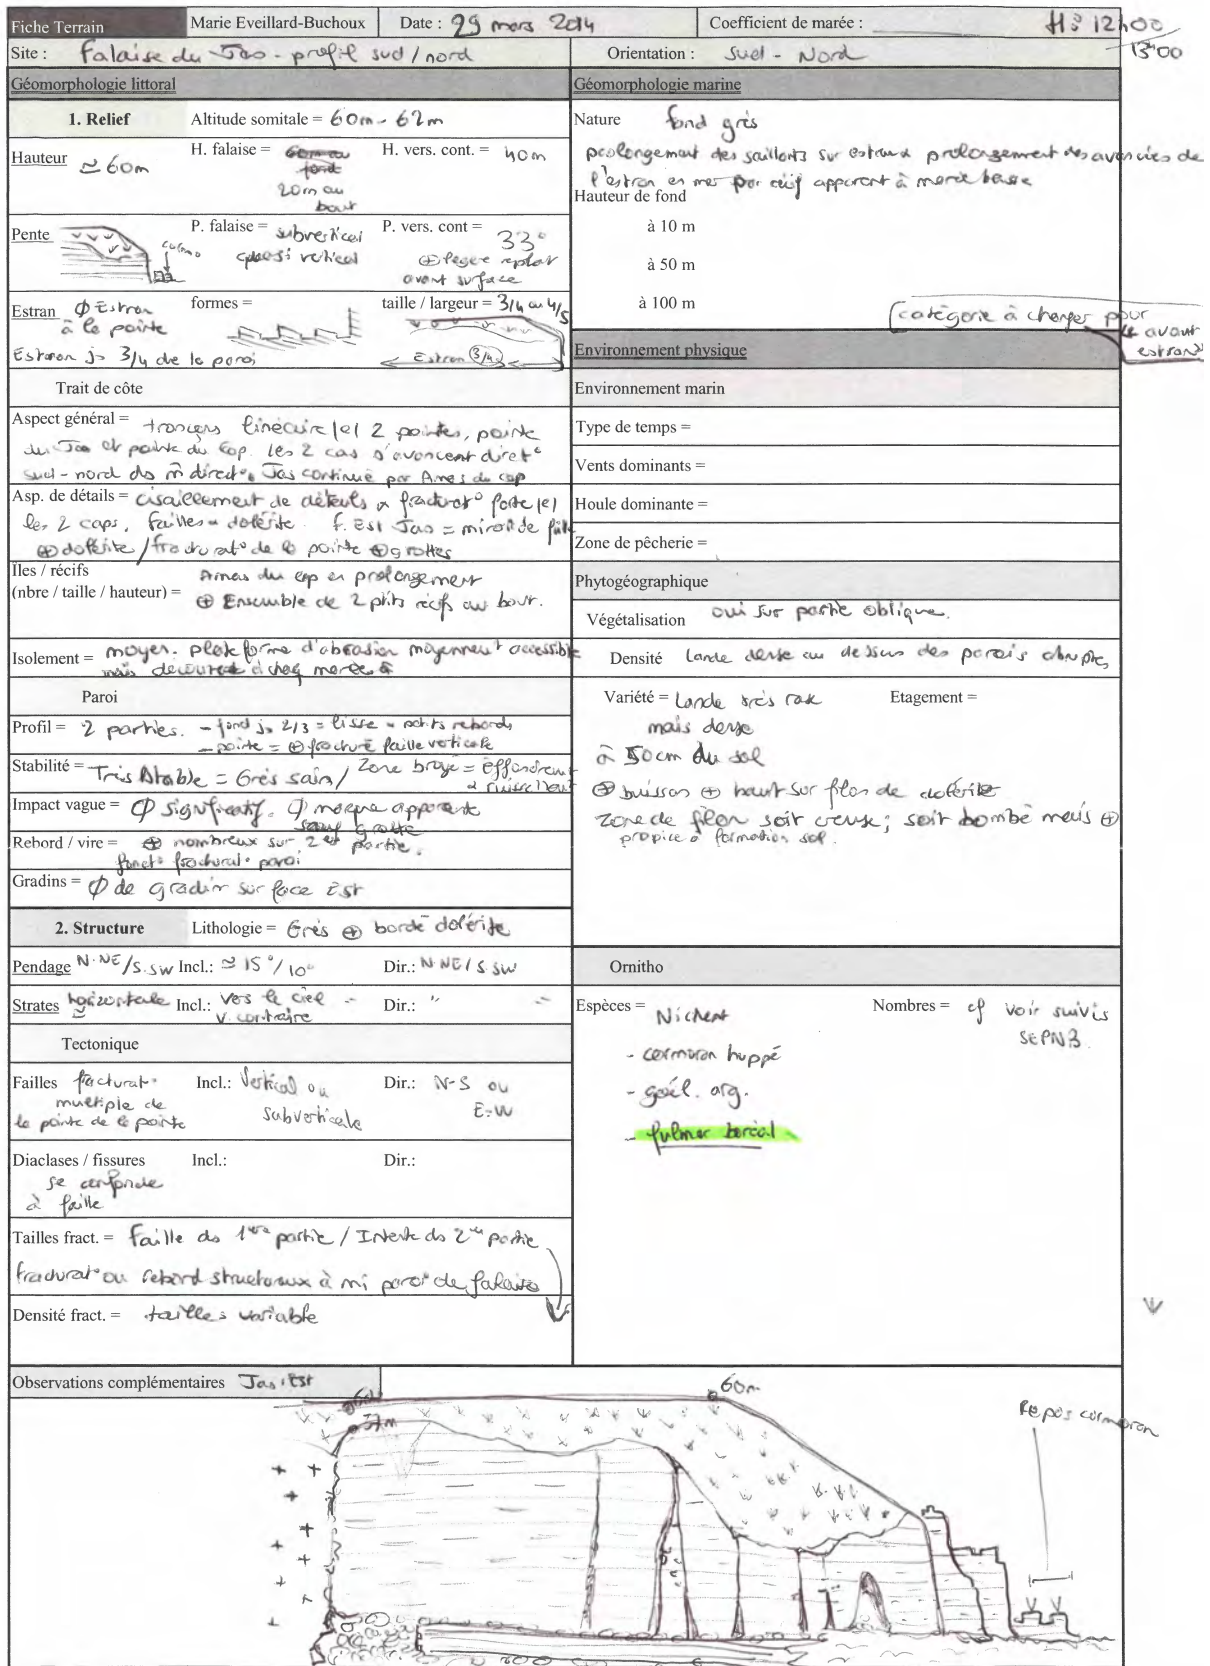 Fiche Terrain Marie Eveillard-Buchoux Date : 29 mars 2014 Coefficient de marée : H: 12h00
13h00
Site : Falaise du Jas - profil sud / nord Orientation : Sud - Nord
Géomorphologie littoral
1. Relief Altitude somitale = 60m - 62m
Hauteur ≃ 60m H. falaise = 20m au bout H. vers. cont. = 40m
Pente P. falaise = subvertical quasi vertical P. vers. cont = 33°
⊕ légère replat
avant surface
Estran Ø Estran
à la pointe
formes = taille / largeur = 3/4 ou 4/5
Estran js 3/4 de la paroi
Estran 3/4
Trait de côte
Aspect général = tronçons linéaire 2 pointes, pointe
du Jas et pointe du Cap. les 2 cas s'avancent direct°
sud-nord ds m̂ direct°. Jas continue par Amas du cap
Asp. de détails = cisaillement de détails fracturat° forte
les 2 caps. failles dolérite. f. Est Jas = miroir de faille
⊕ dolérite / fracturat° de la pointe ⊕ grottes
Iles / récifs
(nbre / taille / hauteur) = Amas du cap en prolongement
⊕ Ensemble de 2 ptits récifs au bout.
Isolement = moyen. plate forme d'abrasion moyennement accessible
mais à chaq marée
Paroi
Profil = 2 parties. - fond js 2/3 = lisse petits rebords
- pointe = ⊕ fracturé faille verticale
Stabilité = Très stable = Grès sain / Zone broyé = effondrement
Impact vague = Ø significatif. Ø marque apparente
sauf grotte
Rebord / vire = ⊕ nombreux sur 2e partie.
fonct° fracturat° paroi
Gradins = Ø de gradin sur face Est
2. Structure Lithologie = Grès ⊕ bordé dolérite
Pendage N.NE/S.SW Incl.: ≃ 15°/10° Dir.: N.NE/S.SW
Strates horizontale Incl.: Vers le ciel Dir.: "
v. contraire
Tectonique
Failles fracturat°
multiple de
la pointe de la pointe
Incl.: Vertical ou
subverticale
Dir.: N-S ou
E-W
Diaclases / fissures Incl.: Dir.:
se confonde
à faille
Tailles fract. = faille ds 1ère partie / ds 2e partie
fracturat° ou rebord structuraux à mi paroi de falaise
Densité fract. = tailles variable
Géomorphologie marine
Nature fond grès
prolongement des saillants sur estran prolongement des avancées de
l'estran en mer par récif apparent à marée basse
Hauteur de fond
à 10 m
à 50 m
à 100 m
catégorie à changer pour
avant
estran
Environnement physique
Environnement marin
Type de temps =
Vents dominants =
Houle dominante =
Zone de pêcherie =
Phytogéographique
Végétalisation oui sur partie oblique.
Densité Lande dense au dessus des parois abruptes
Variété = Lande très rase Etagement =
mais dense
à 50cm du sol
⊕ buisson ⊕ haut sur filon de dolérite
zone de filon soit creusé; soit bombé mais ⊕
propice à formation sol.
Ornitho
Espèces = Nichent Nombres = cf voir suivis
SEPNB
- cormoran huppé
- goél. arg.
- fulmar boréal
Observations complémentaires Jas Est
60m
37m
Repos cormoran